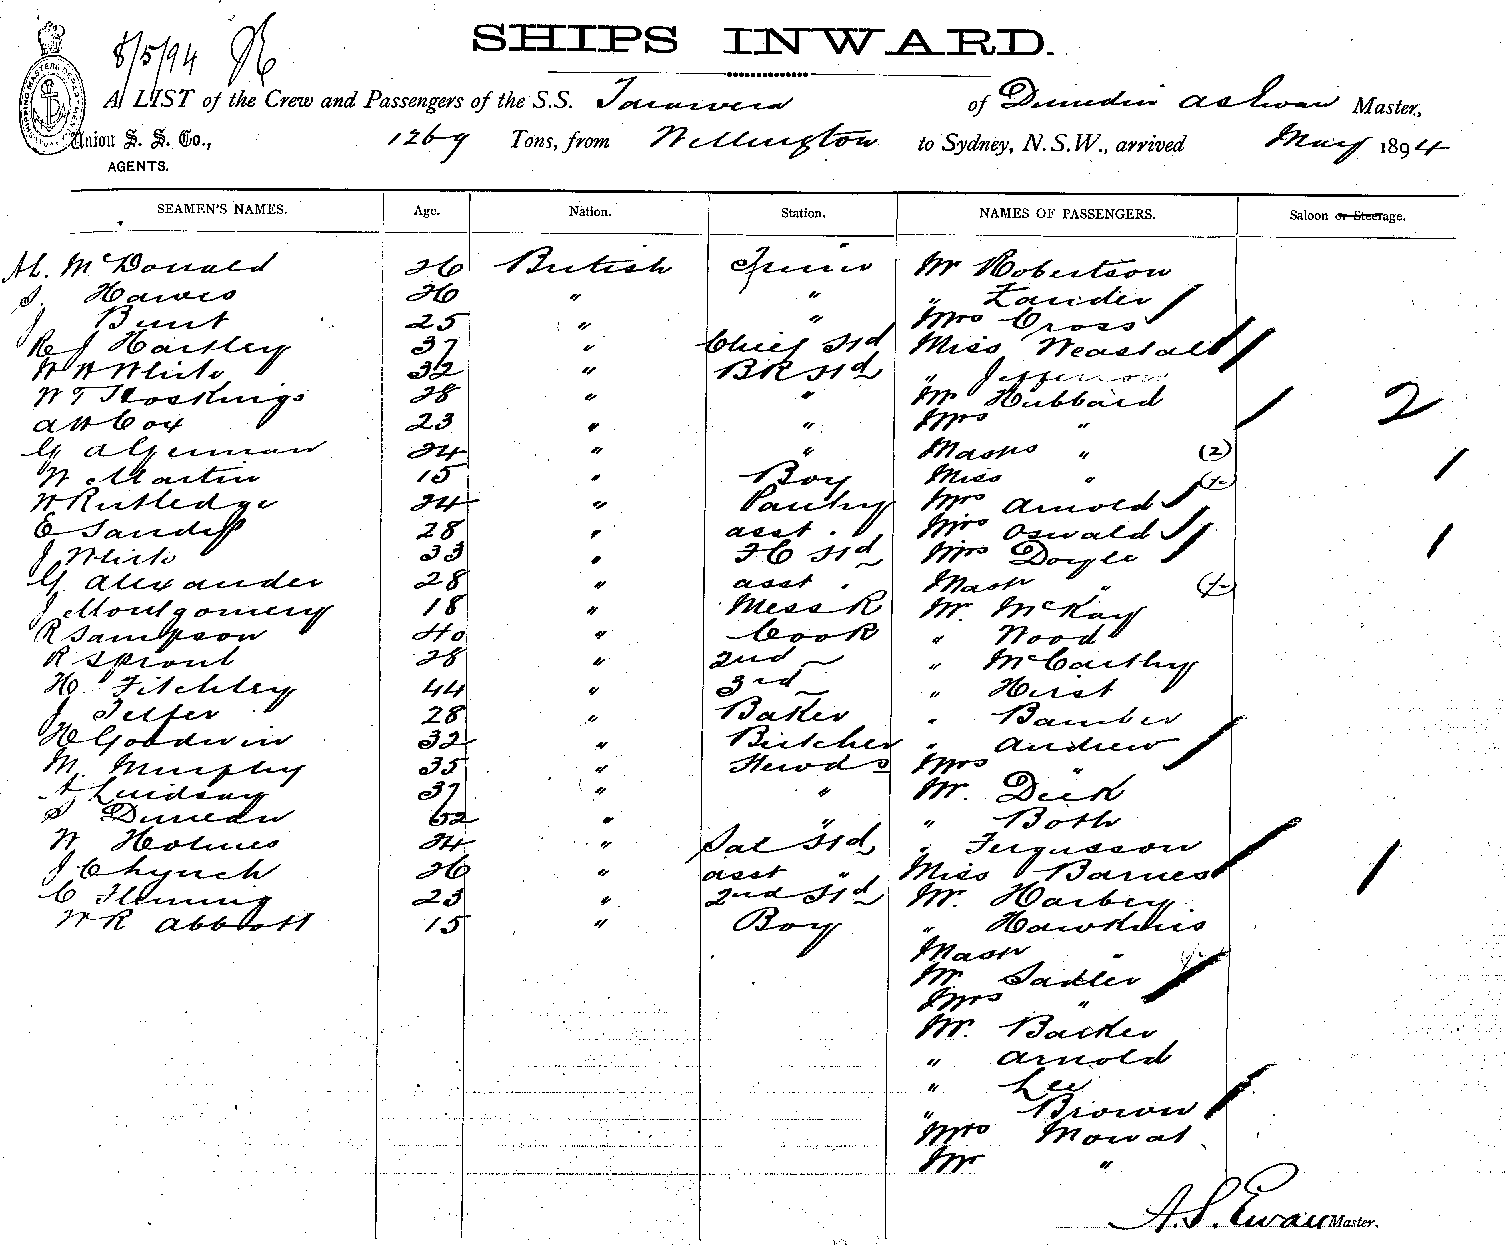 SHIPS INWARD.
8/5/94
A LIST of the Crew and Passengers of the S.S. Tarawera of Dunedin A S Ewan Master,
Union S. S. Co., 1269 Tons, from Wellington to Sydney, N.S.W., arrived May 1894
AGENTS.
SEAMEN'S NAMES. Age. Nation. Station. NAMES OF PASSENGERS. Saloon or Steerage.
McDonald 26 British Trimr Mr Robertson
S. Hawes 26 " " " Lander
J Bunt 25 " " Mrs Cross
R J Hartley 37 " Chief Std Miss Weastall
W H White 32 " BR Std " Jefferson
W T Hoskings 28 " " Mr Hubbard 2
A H Cox 23 " " Mrs "
G A German 24 " " Masrs " (2)
W Martin 15 " Boy Miss " (1) 1
W Rutledge 24 " Pantry Mrs Arnold
E Sandys 28 " asst. Mrs Oswald
J White 33 " FC Std Mrs Doyle 1
G Alexander 28 " asst. Mastr " (1)
J Montgomery 18 " Mess R Mr. McKay
R Sampson 40 " Cook " Wood
R Sproul 28 " 2nd " McCarthy
H Fitchley 44 " 3rd " Hirst
J Telfer 28 " Baker " Bamber
H Goodwin 32 " Butcher " Andrew
M. Murphy 35 " Stewds Mrs "
A Lindsay 37 " " Mr. Dick
S Duncan 62 " " " Both
W Holmes 24 " Sal Std " Fergusson
J C Lynch 26 " asst " Miss Barnes 1
C Fleming 23 " 2nd Std Mr. Harbey
W R Abbott 15 " Boy " Hawkins
Mastr "
Mr. Sadler
Mrs "
Mr. Backer
" Arnold
" Lee
" Brown
Mrs Mowat
Mr "
A. S. Ewan Master.